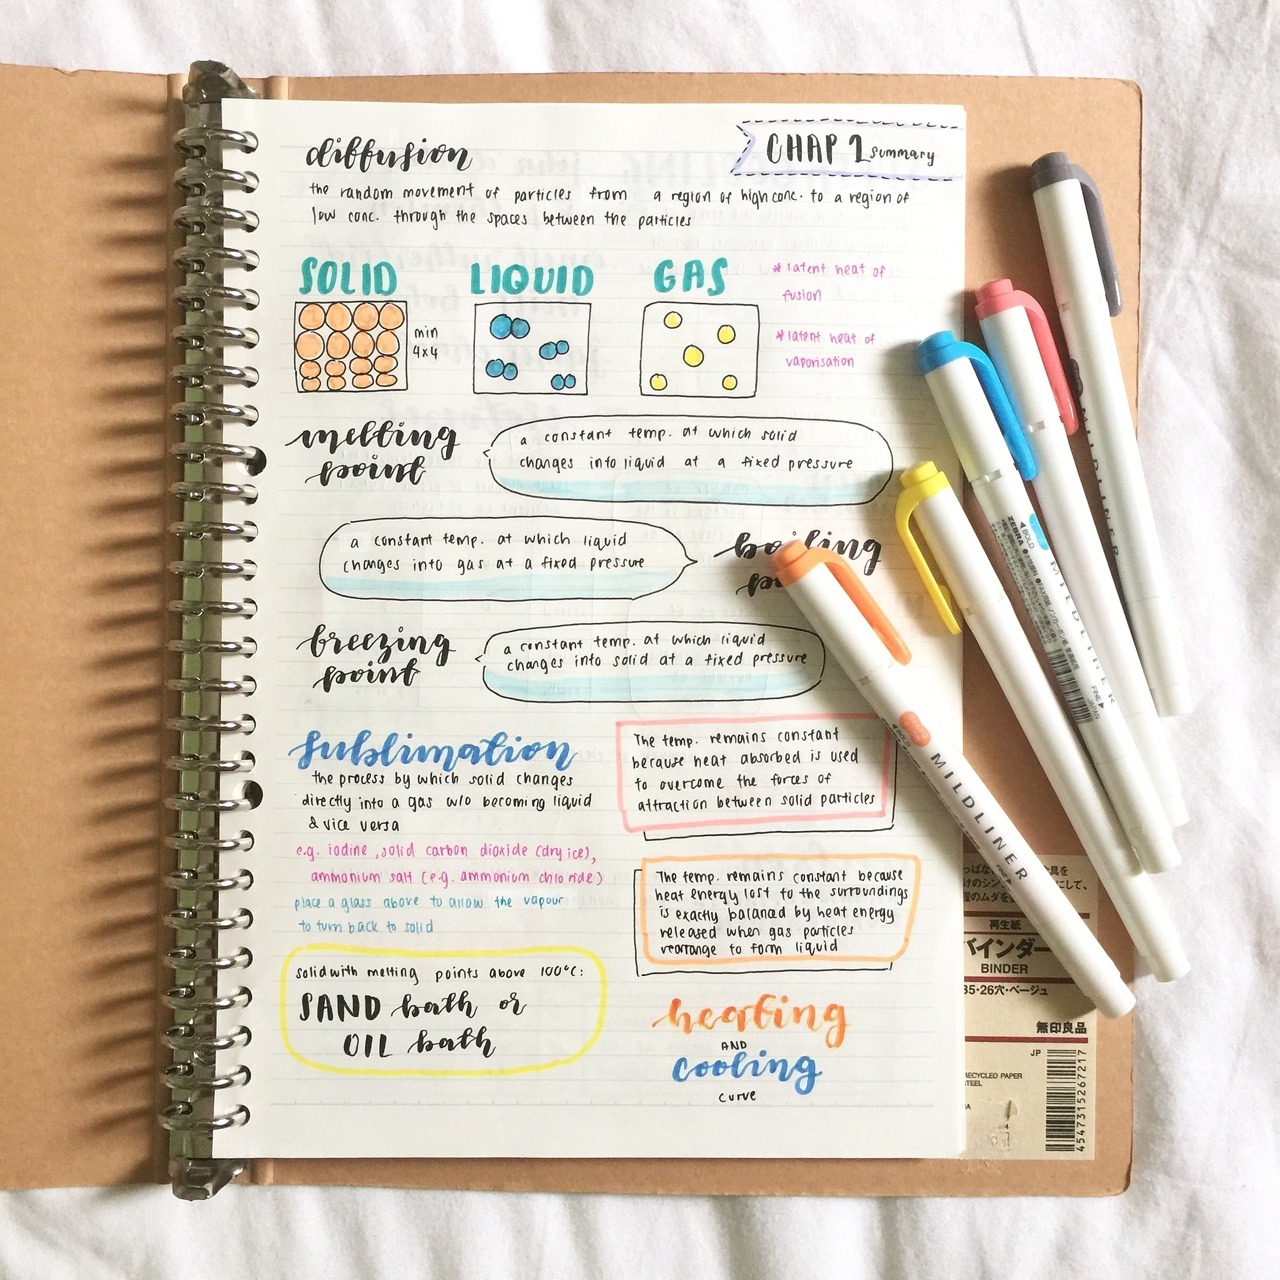 CHAP 1 summary
diffusion
the random movement of particles from a region of high conc. to a region of
low conc. through the spaces between the particles
SOLID LIQUID GAS
min
4x4
* latent heat of
fusion
* latent heat of
vaporisation
melting
point
a constant temp. at which solid
changes into liquid at a fixed pressure
a constant temp. at which liquid
changes into gas at a fixed pressure
boiling
freezing
point
a constant temp. at which liquid
changes into solid at a fixed pressure
sublimation
the process by which solid changes
directly into a gas w/o becoming liquid
& vice versa
e.g. iodine, solid carbon dioxide (dry ice),
ammonium salt (e.g. ammonium chloride)
place a glass above to allow the vapour
to turn back to solid
The temp. remains constant
because heat absorbed is used
to overcome the forces of
attraction between solid particles
The temp. remains constant because
heat energy lost to the surroundings
is exactly balanced by heat energy
released when gas particles
rearrange to form liquid
solid with melting points above 100°C:
SAND bath or
OIL bath
heating
AND
cooling
curve
MILDLINER
MILDLINER
ZEBRA
BOLD
FINE
JAPAN
再生紙
バインダー
BINDER
35・26穴・ベージュ
無印良品
JP
RECYCLED PAPER
4547315267217